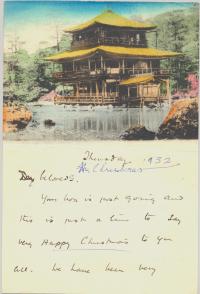 Thursday 1932
Christmas
Dear beloveds.
Your box is just going and
this is just a time to say
very Happy Christmas to you
all. We have been very